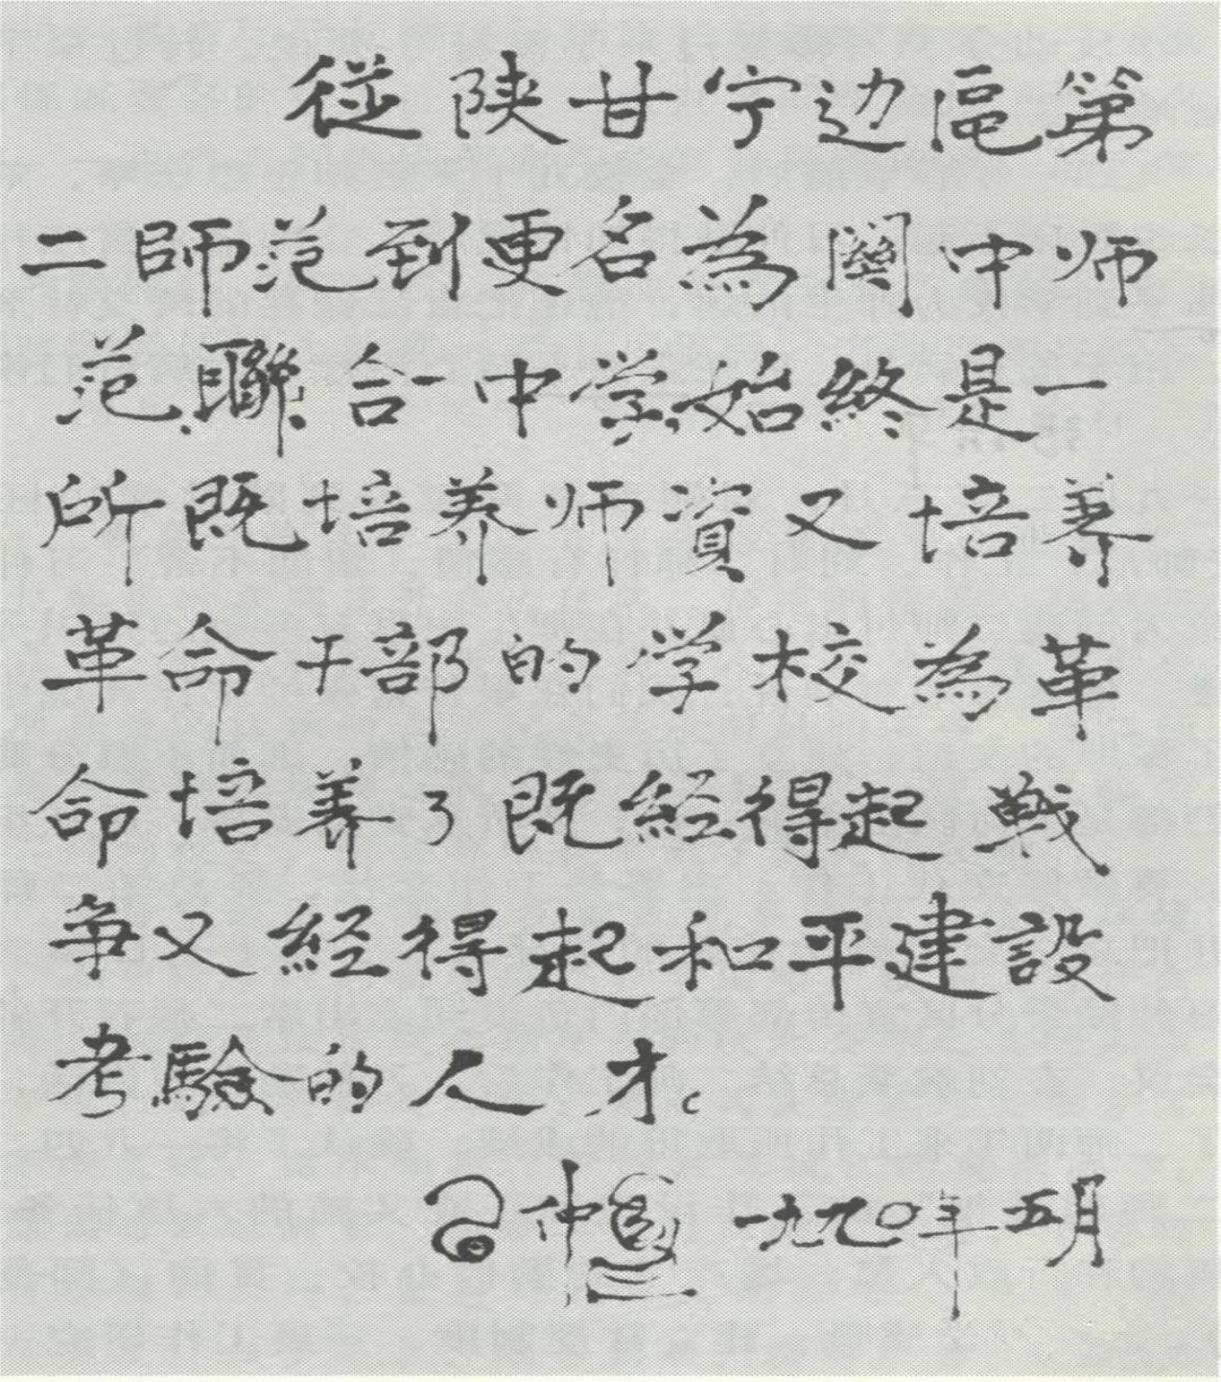 從陕甘宁边區第
二師范到更名為関中师
范聯合中学始終是一
所既培养师資又培养
革命干部的学校為革
命培养了既経得起戦
争又経得起和平建設
考驗的人才。
一九九〇年五月